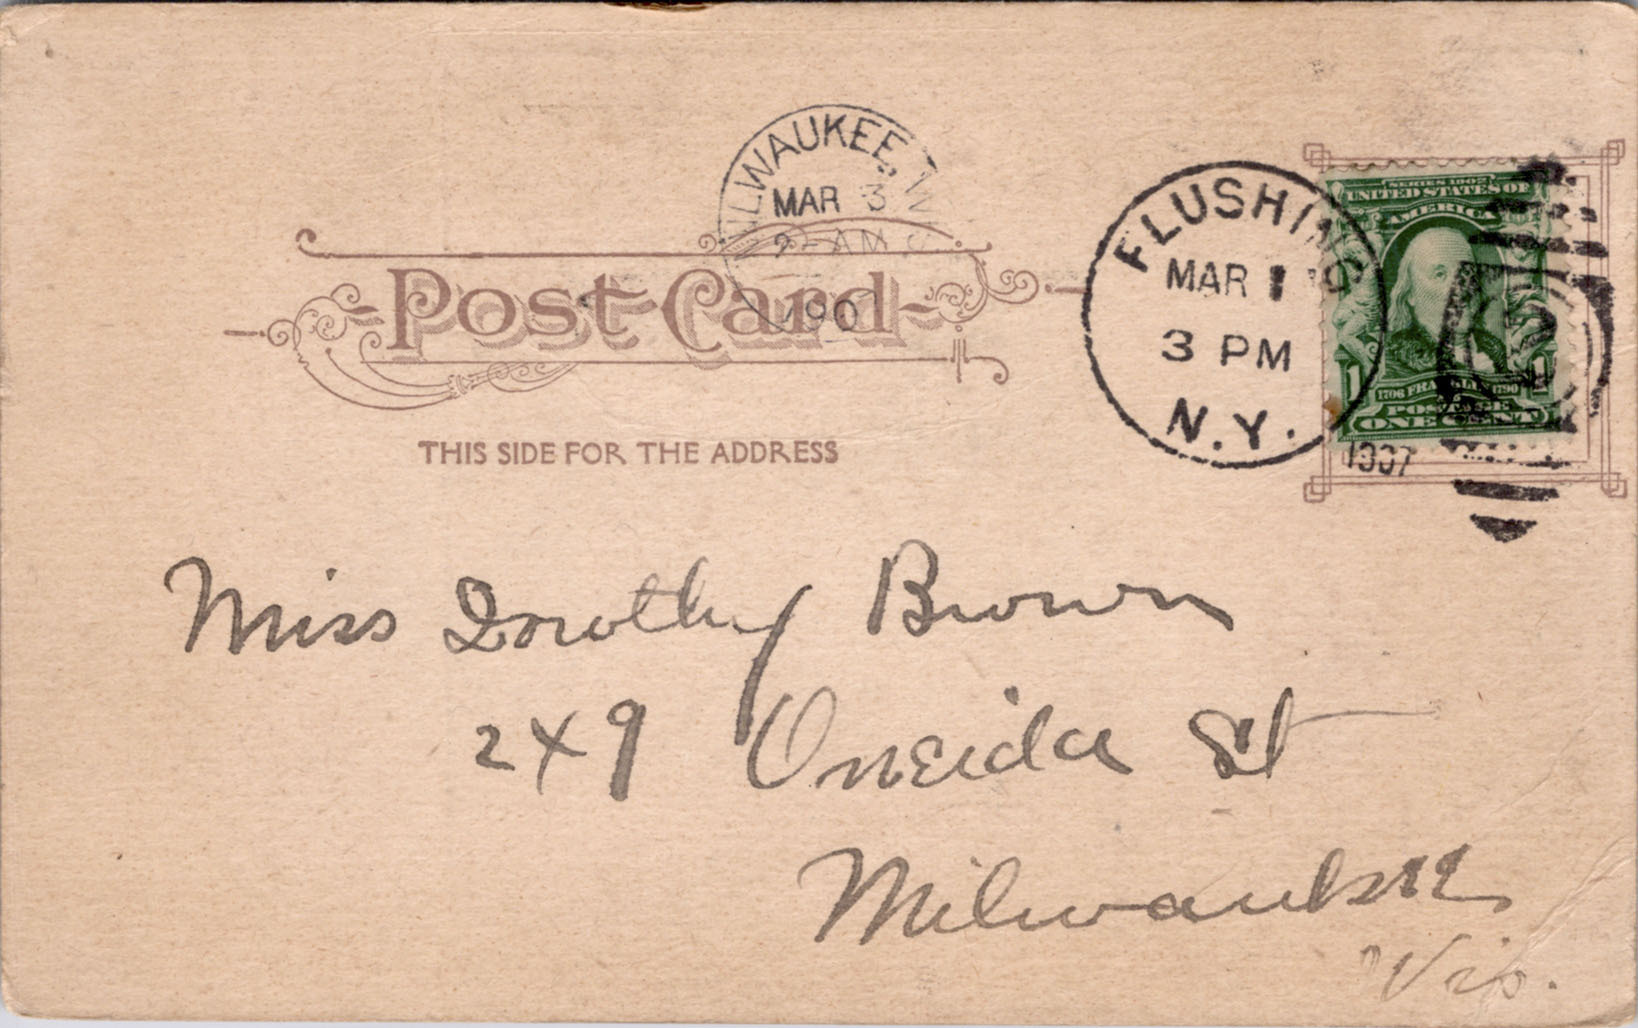 MILWAUKEE, W
MAR 3
AM
190
FLUSHING
MAR 1
3 PM
N.Y.
1907
SERIES 1902
UNITED STATES OF
AMERICA
1 1
1706 FRANKLIN 1790
POSTAGE
ONE CENT
2
Post Card
THIS SIDE FOR THE ADDRESS
Miss Dorothy Brown
249 Oneida St
Milwaukee
Wis.